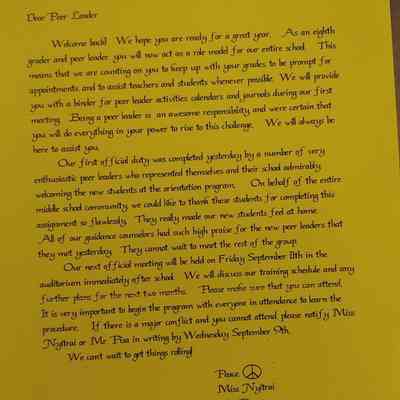 Dear Peer Leader
Welcome back! We hope you are ready for a great year. As an eighth
grader and peer leader you will now act as a role model for our entire school. This
means that we are counting on you to keep up with your grades to be prompt for
appointments, and to assist teachers and students whenever possible. We will provide
you with a binder for peer leader activities calendars and journals during our first
meeting. Being a peer leader is an awesome responsibility, and were certain that
you will do everything in your power to rise to this challenge. We will always be
here to assist you.
Our first official duty was completed yesterday by a number of very
enthusiastic peer leaders who represented themselves and their school admirably
welcoming the new students at the orientation program. On behalf of the entire
middle school community, we could like to thank these students for completing this
assignment so flawlessly. They really made our new students feel at home.
All of our guidance counselors had such high praise for the new peer leaders that
they met yesterday. They cannot wait to meet the rest of the group.
Our next official meeting will be held on Friday September 11th in the
auditorium immediately after school. We will discuss our training schedule and any
further plans for the next two months. Please make sure that you can attend.
It is very important to begin the program with everyone in attendance to learn the
procedure. If there is a major conflict and you cannot attend please notify Miss
Nylirai or Mr. Pisa in writing by Wednesday September 9th.
We can't wait to get things rolling!
Peace
Miss Nylirai